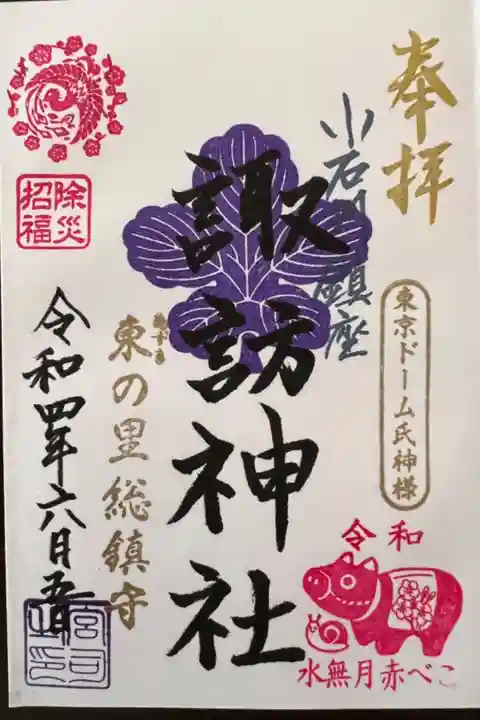 奉拝
小石川鎮座
東京ドーム氏神様
諏訪神社
東の里総鎮守
令和四年六月五日
除災
招福
令和
水無月赤べこ
宮司
之印